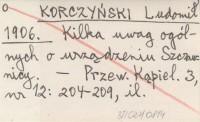 o KORCZYŃSKI Ludomił
1906. Kilka uwag ogól-
nych o urządzeniu Szczaw-
nicy. — Przew. Kąpiel. 3,
nr 12: 204-209, il.